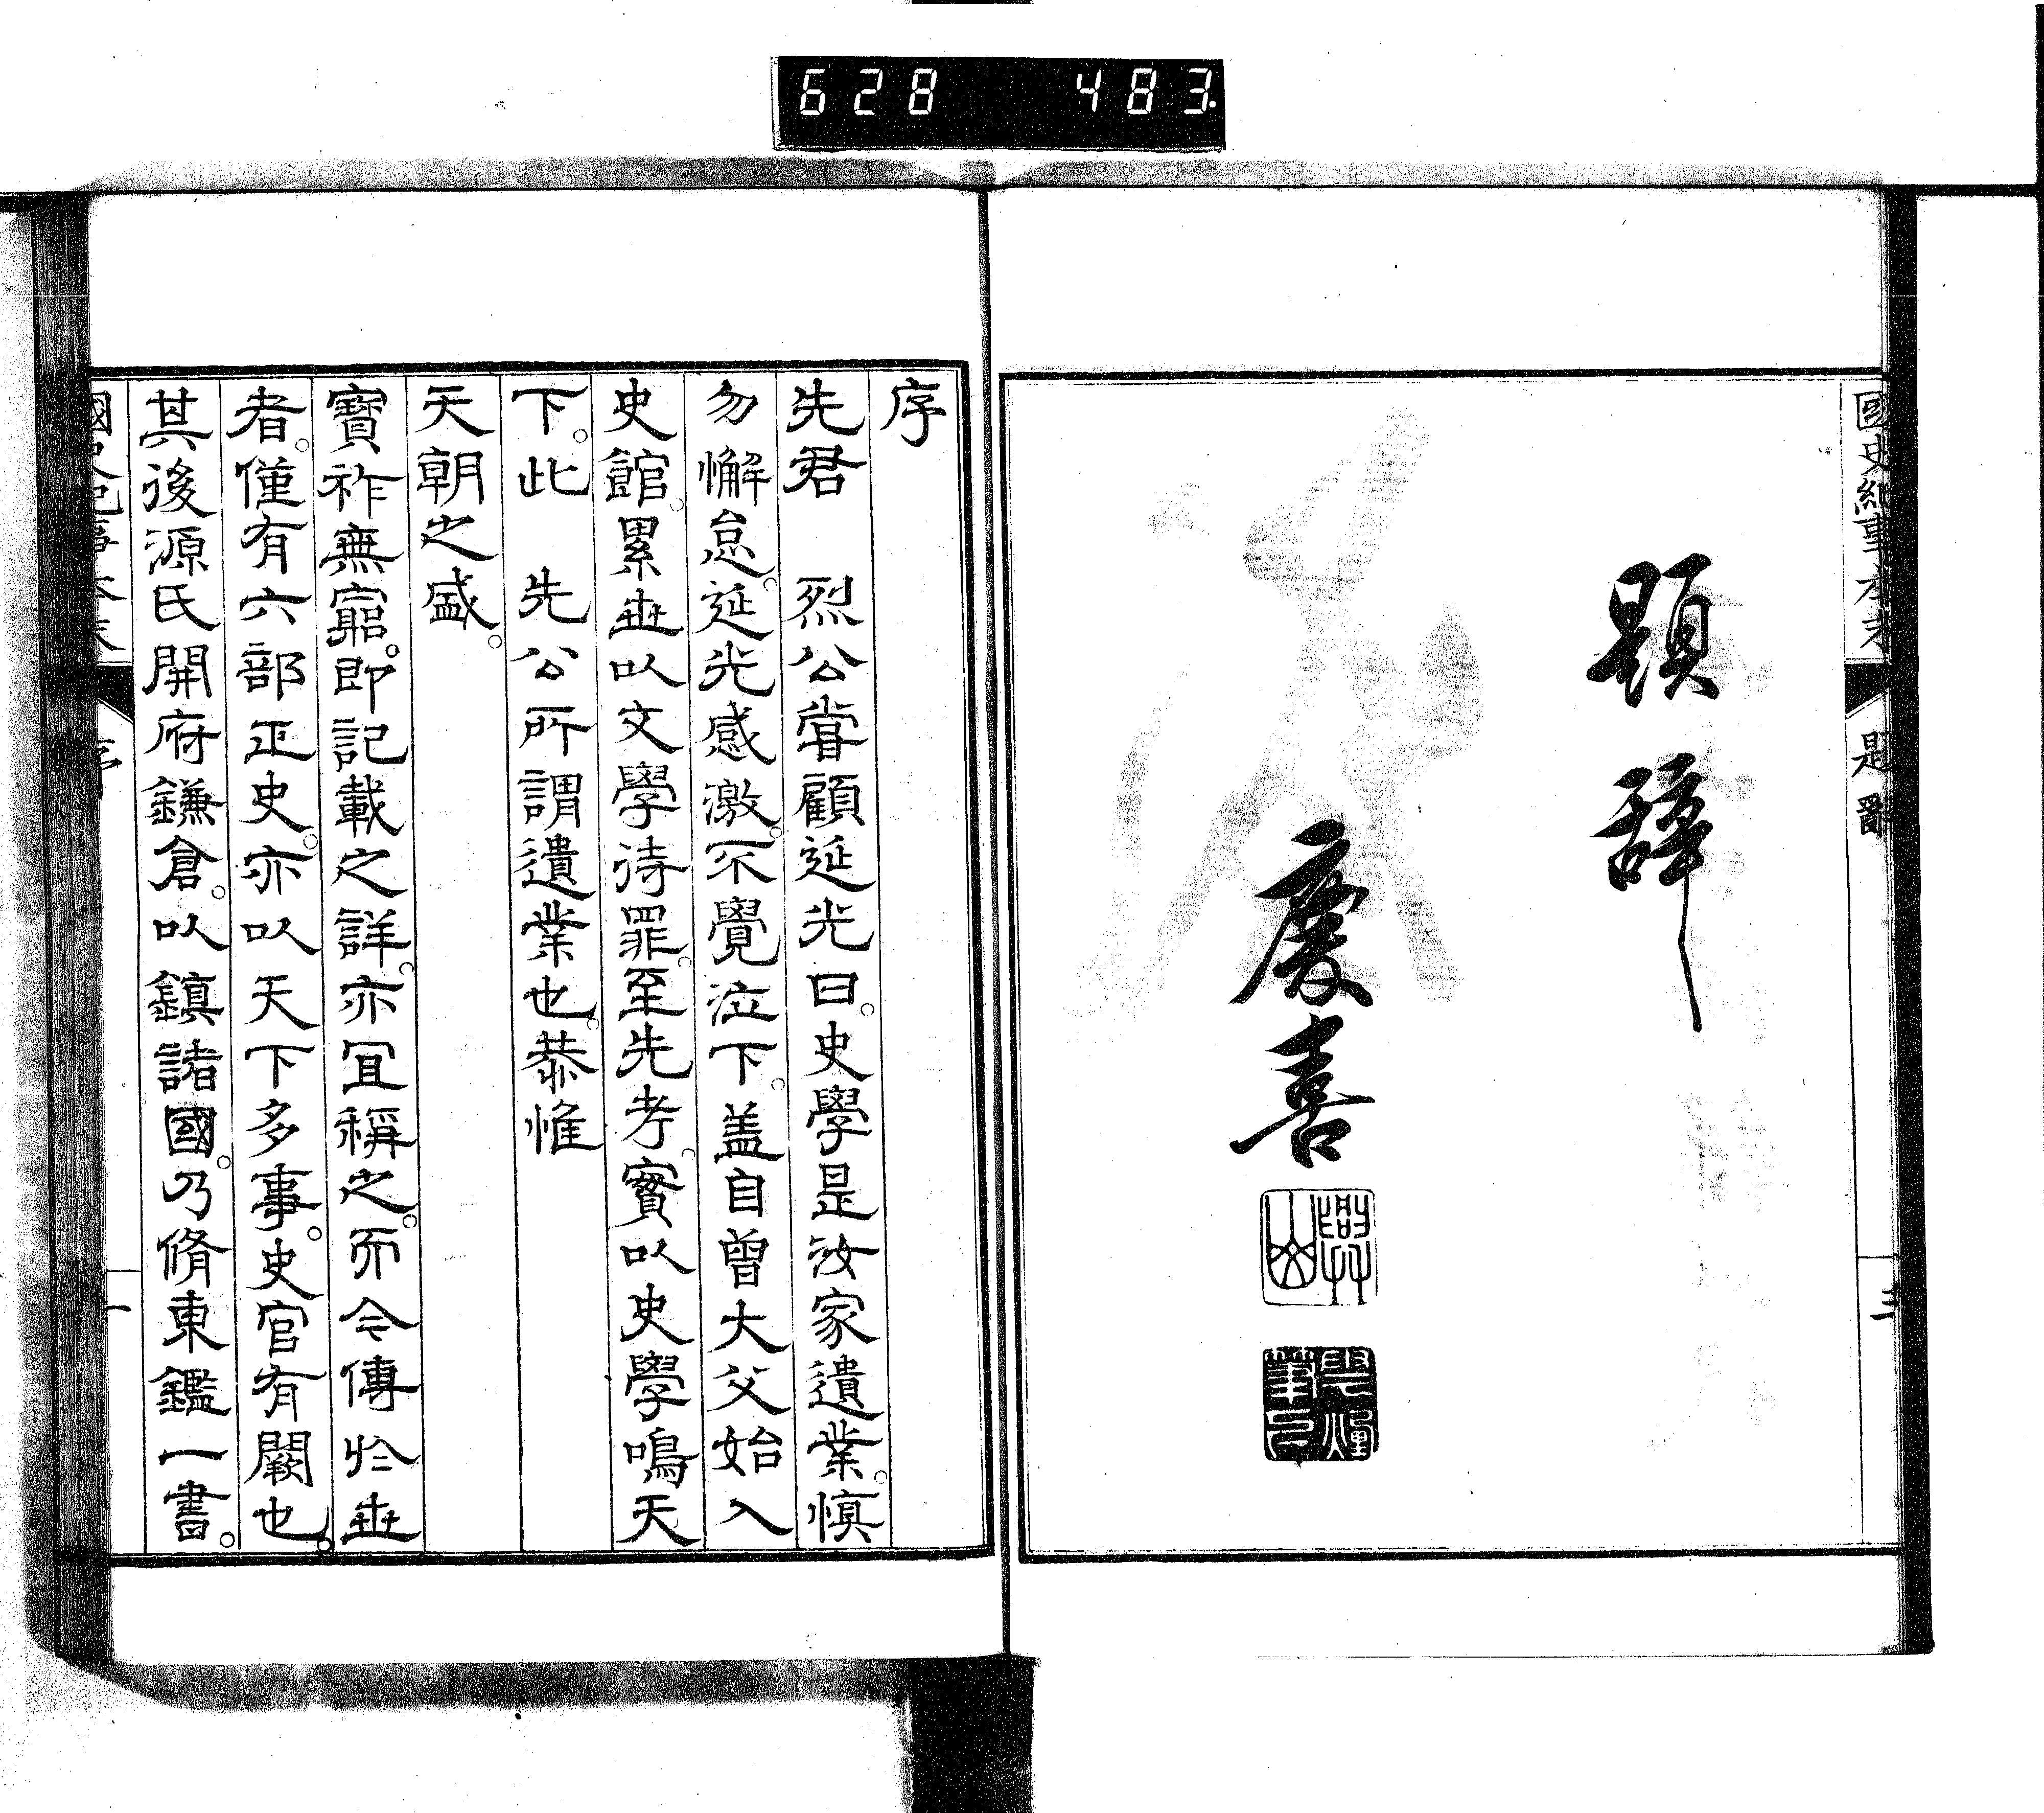 628 483
國史紀事本末
題辭
三
題辭
慶喜
興山
序
先君　烈公嘗顧延光曰。史學是汝家遺業。愼
勿懈怠。延光感激。不覺泣下。盖自曾大父始入
史館。累世以文學待罪。至先考。實以史學鳴天
下。此　先公所謂遺業也。恭惟
天朝之盛。
寶祚無窮。卽記載之詳。亦宜稱之。而今傳於世
者。僅有六部正史。亦以天下多事。史官有闕也。
其後源氏開府鎌倉。以鎮諸國。乃脩東鑑一書。
國史紀事本末
序
一